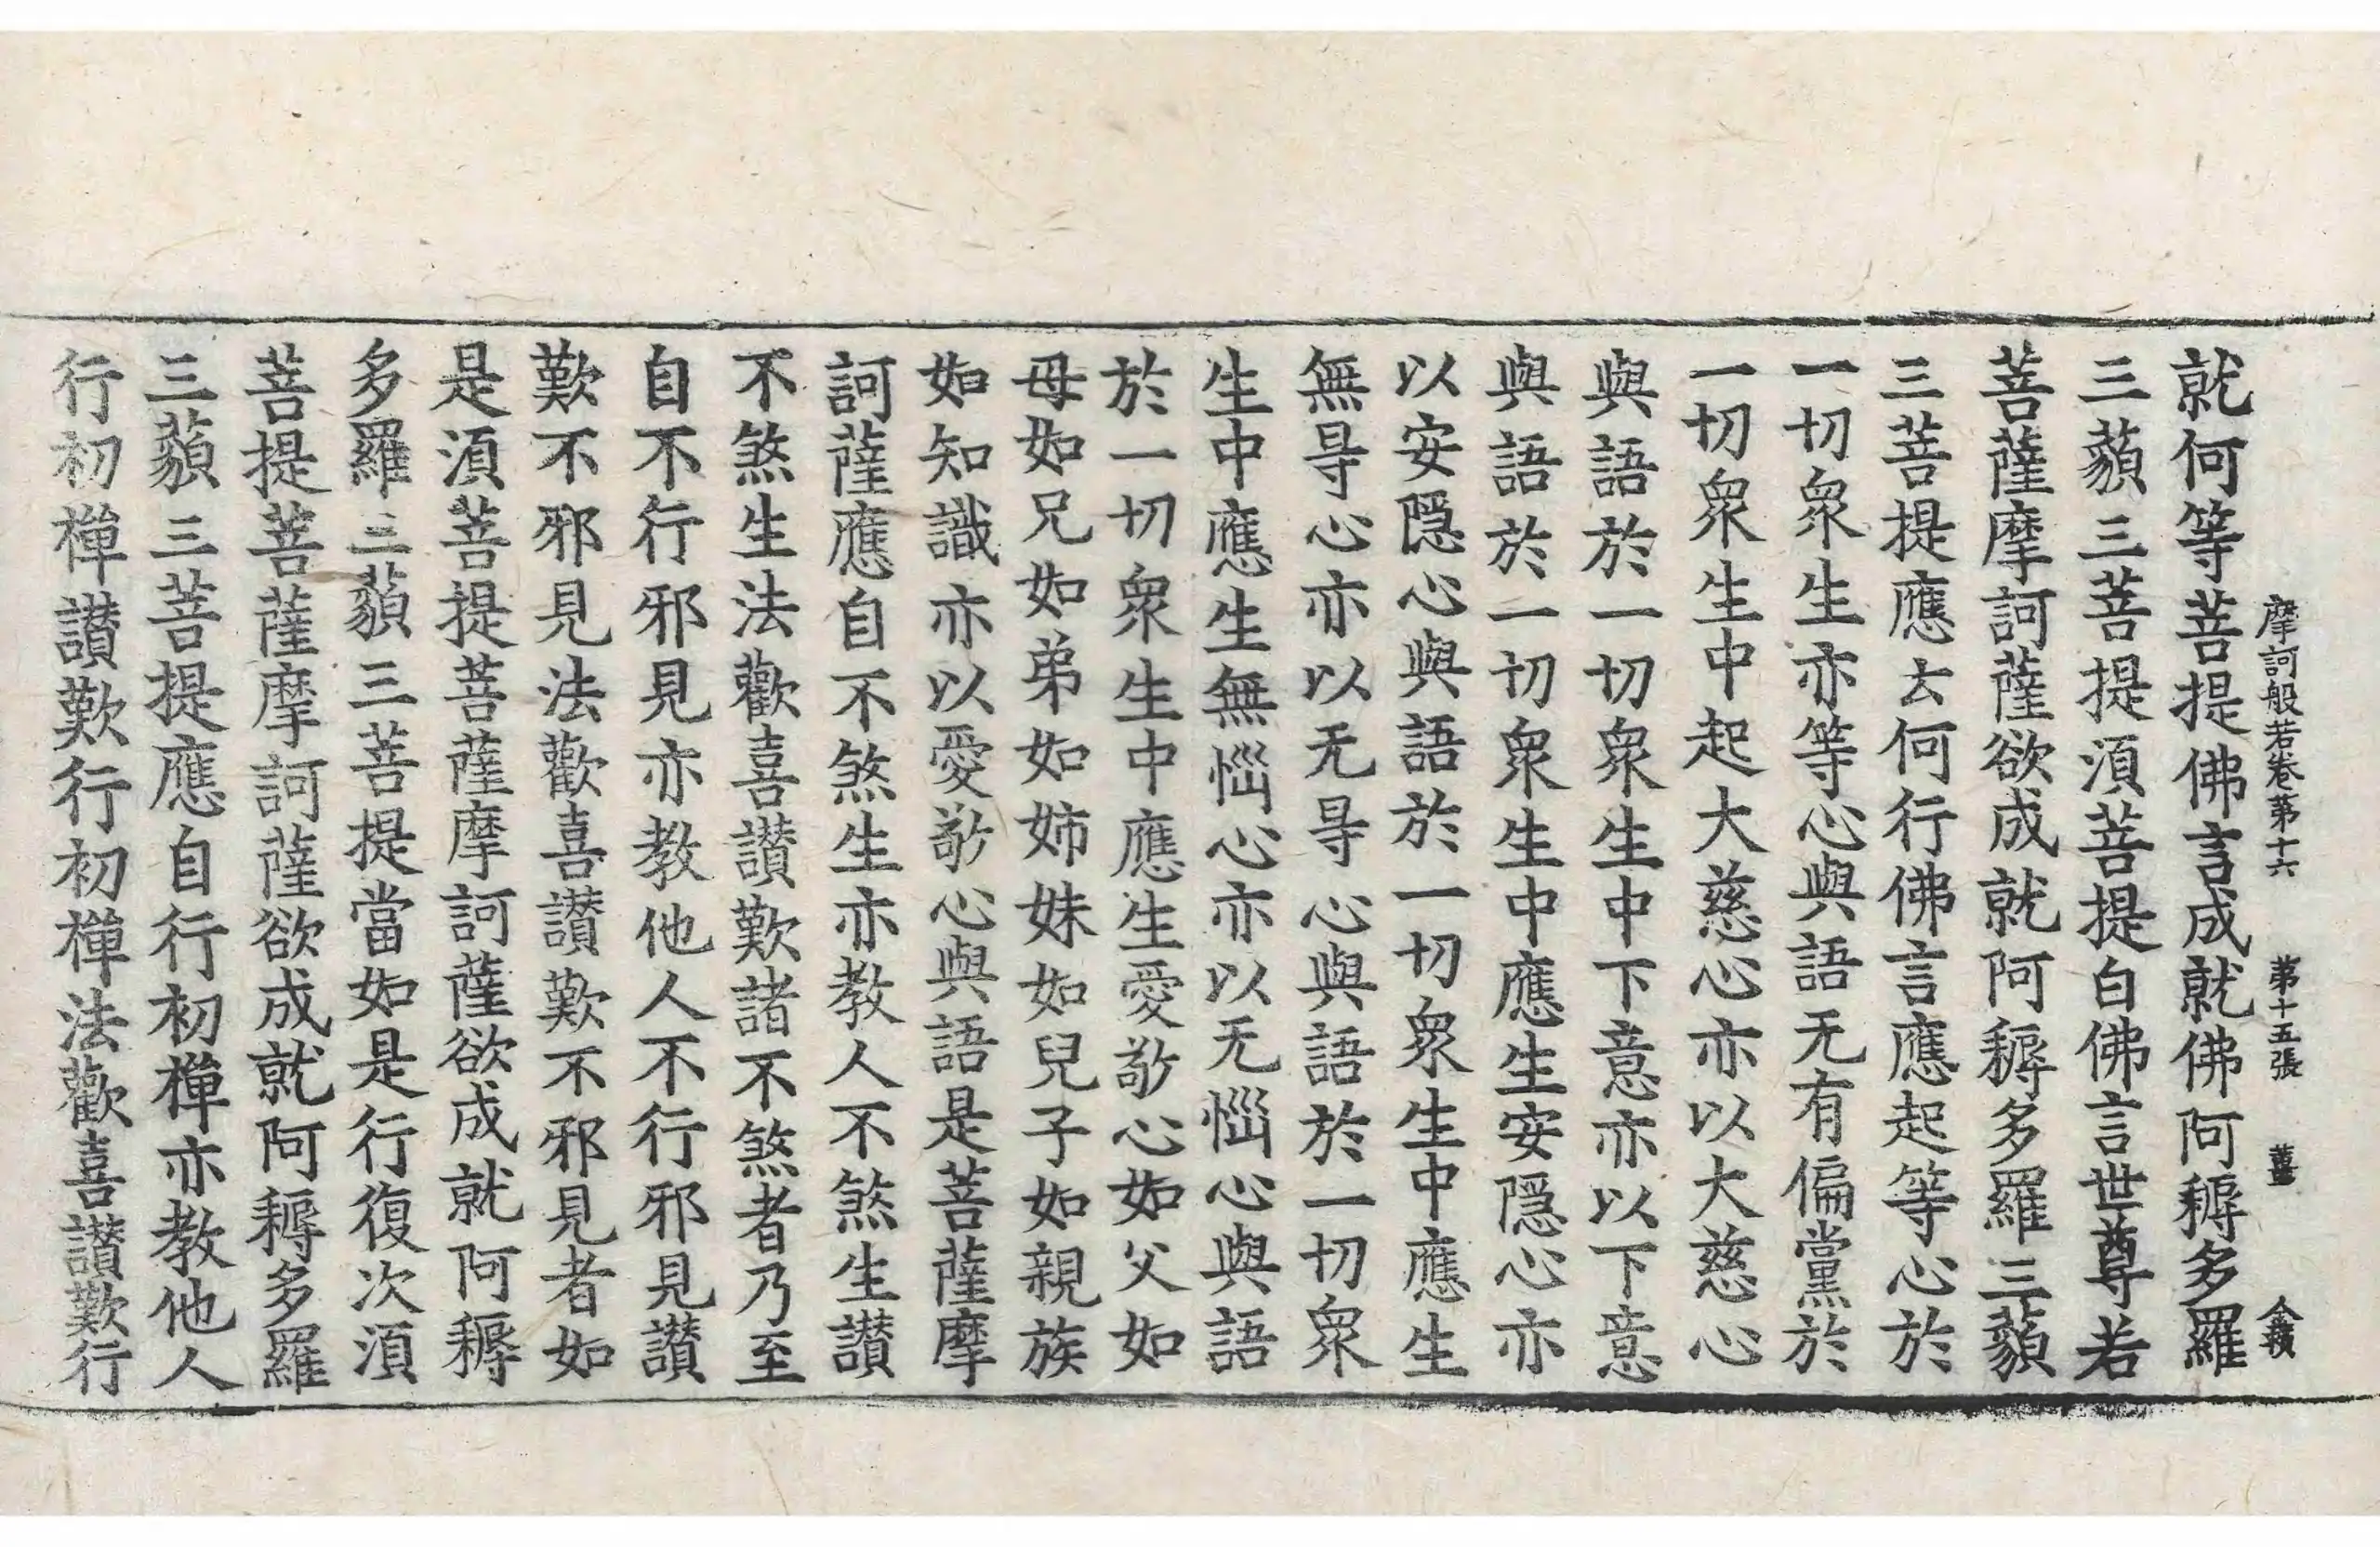 摩訶般若卷第十六 第十五張 薑
就何等菩提佛言成就佛阿耨多羅
三藐三菩提湏菩提白佛言世尊若
菩薩摩訶薩欲成就阿耨多羅三藐
三菩提應云何行佛言應起等心於
一切衆生亦等心與語无有偏黨於
一切衆生中起大慈心亦以大慈心
與語於一切衆生中下意亦以下意
與語於一切衆生中應生安隱心亦
以安隱心與語於一切衆生中應生
無㝵心亦以无㝵心與語於一切衆
生中應生無惱心亦以无惱心與語
於一切衆生中應生愛敬心如父如
母如兄如弟如姉妹如兒子如親族
如知識亦以愛敬心與語是菩薩摩
訶薩應自不煞生亦教人不煞生讃
不煞生法歡喜讃歎諸不煞者乃至
自不行邪見亦教他人不行邪見讃
歎不邪見法歡喜讃歎不邪見者如
是湏菩提菩薩摩訶薩欲成就阿耨
多羅三藐三菩提當如是行復次湏
菩提菩薩摩訶薩欲成就阿耨多羅
三藐三菩提應自行初禪亦教他人
行初禪讃歎行初禪法歡喜讃歎行